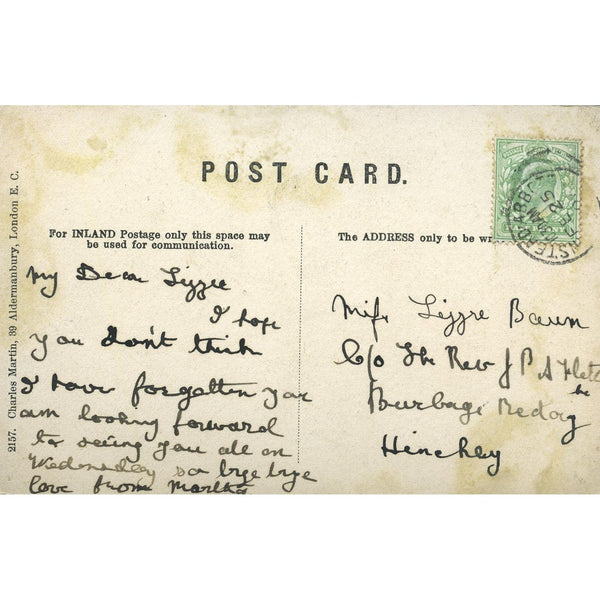 POST CARD.
For INLAND Postage only this space may
be used for communication.
The ADDRESS only to be wr
2157. Charles Martin, 39 Aldermanbury, London E. C.
My Dear Lizzie
I hope
you don't think
I have forgotten you
am looking forward
to seeing you all on
Wednesday so bye bye
love from Martha
Miss Lizzie
C/o The Rev J P A Fletc
he
Burbage Rectory
Hinckley